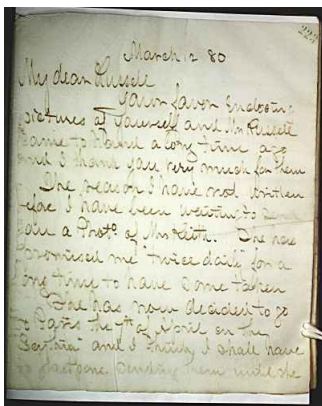 March 12 80
My dear Russell
Your favor Enclosing
pictures of Yourself and Mrs Russell
came to hand a long time ago
and I thank you very much for them
The reason I have not written
before I have been waiting to send
you a Photo of Mrs Keith. She has
promised me "twice daily" for a
long time to have some taken
She has now decided to go
to Paris the 7th of April on the
"Scythia" and I think I shall have
to postpone sending them until she